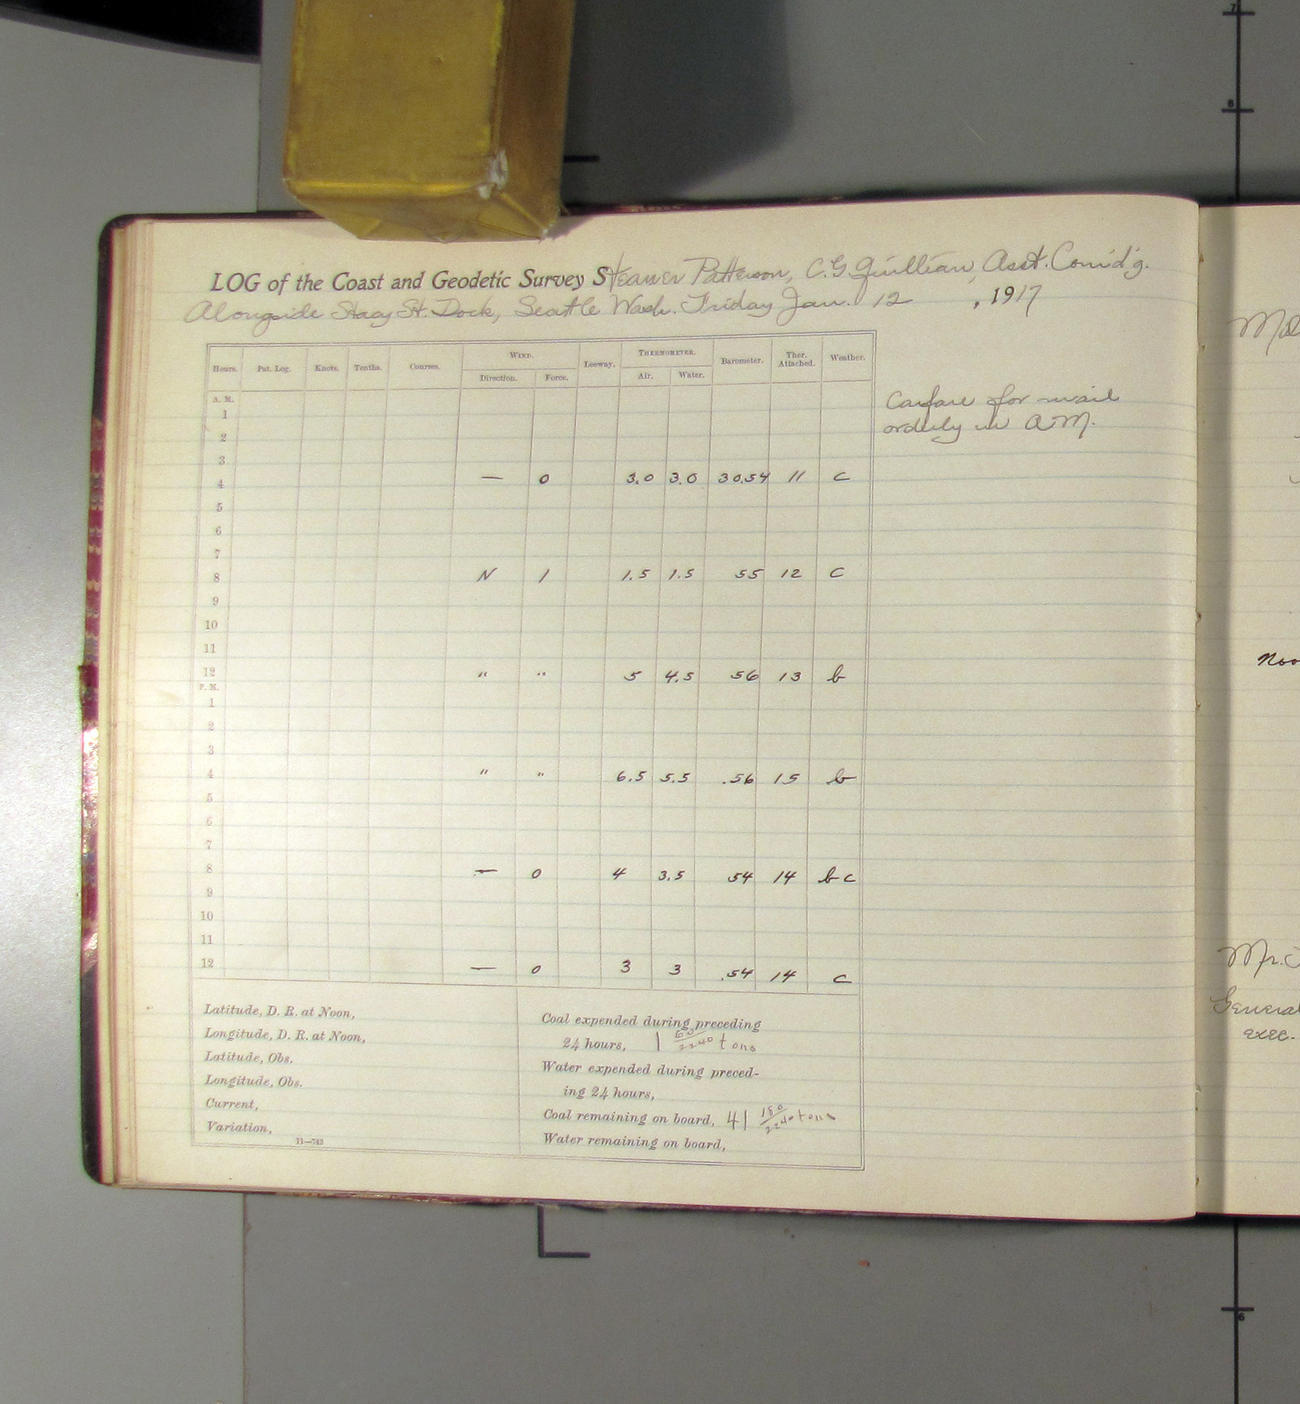 LOG of the Coast and Geodetic Survey Steamer Patterson, C.G. Quillian, Asst. Comd'g.
Alongside Stacy St. Dock, Seattle Wash. Friday Jan. 12, 1917
Hours. Pat. Log. Knots. Tenths. Courses. WIND. Leeway. THERMOMETER. Barometer. Ther. Attached. Weather.
Direction. Force. Air. Water.
A. M.
1
2
3
4 — 0 3.0 3.0 30.54 11 c
5
6
7
8 N 1 1.5 1.5 55 12 c
9
10
11
12 " " 5 4.5 56 13 b
P. M.
1
2
3
4 " " 6.5 5.5 .56 15 b
5
6
7
8 — 0 4 3.5 54 14 b c
9
10
11
12 — 0 3 3 .54 14 c
Carfare for mail
orderly in A.M.
Latitude, D. R. at Noon,
Longitude, D. R. at Noon,
Latitude, Obs.
Longitude, Obs.
Current,
Variation,
11—743
Coal expended during preceding
24 hours, 1 60/2240 tons
Water expended during preced-
ing 24 hours,
Coal remaining on board, 41 180/2240 tons
Water remaining on board,
Noo
Mr.
General
exec.
7
8
6